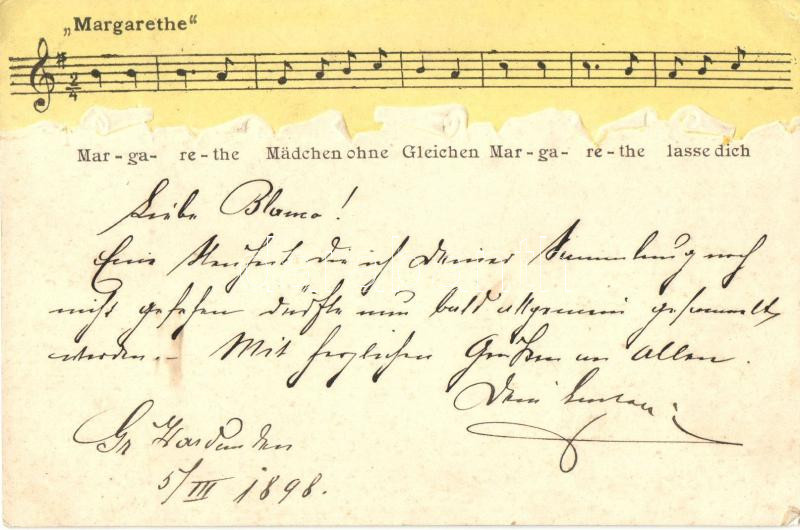 „Margarethe“
2
4
Mar-ga- re-the Mädchen ohne Gleichen Mar-ga- re-the lasse dich
Liebe Blanca!
Eine Neuheit die ich Deiner Sammlung noch
nicht gesehen dürfte nun bald allgemein gesammelt
werden.– Mit herzlichen Grüßen an Allen.
Dein
Gr
5/III 1898.